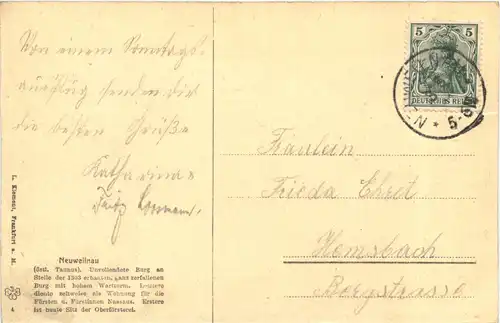 Von einem Sonntags-
ausflug senden dir
die besten Grüße
Katharina &
Fritz
Fräulein
Frieda Ehret
Hemsbach
Bergstrasse
5 5
DEUTSCHES REICH
5-6
L. Klement, Frankfurt a. M.
4
Neuweilnau
(östl. Taunus). Unvollendete Burg an
Stelle der 1303 erbauten, ganz zerfallenen
Burg mit hohem Wartturm. Letztere
diente zeitweise als Wohnung für die
Fürsten u. Fürstinnen Nassaus. Erstere
ist heute Sitz der Oberförsterei.